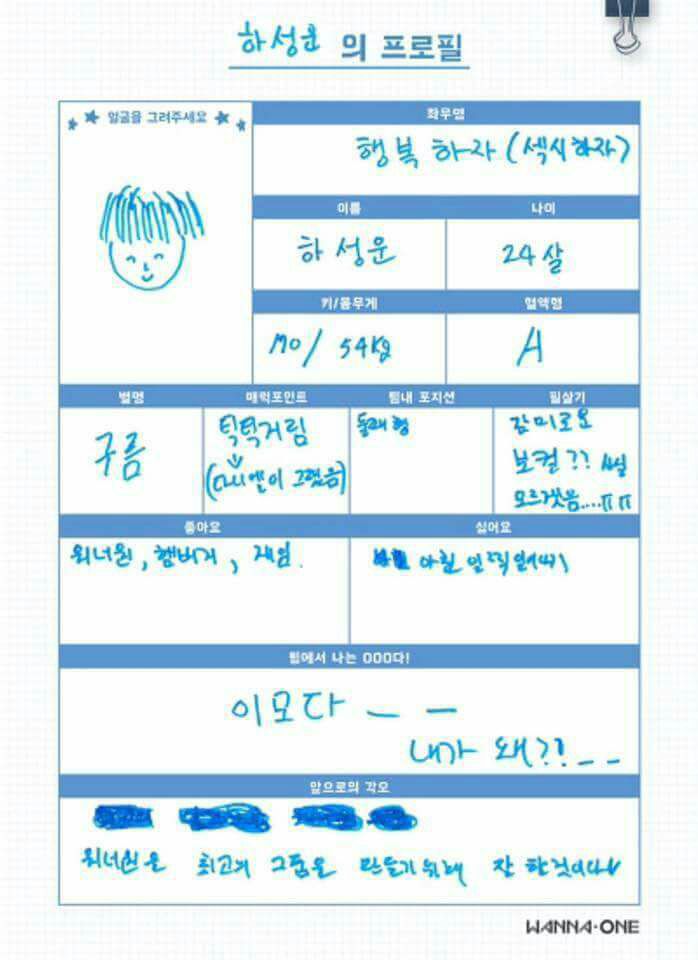 하성운 의 프로필
얼굴을 그려주세요
좌우명
행복 하자 (섹시하자)
이름
나이
하성운
24살
키/몸무게
혈액형
170/ 54kg
A
별명
매력포인트
팀내 포지션
필살기
구름
틱턱거림
(다니엘이 그랬음)
둘째형
감미로운
보컬?? 사실
모르겠음....ㅠㅠ
좋아요
싫어요
워너원, 햄버거, 게임.
아침 일찍 일어나기
팀에서 나는 OOO다!
이모다 _ _
내가 왜??_ _
앞으로의 각오
워너원을 최고의 그룹을 만들기위해 잘 할것이다
WANNA·ONE